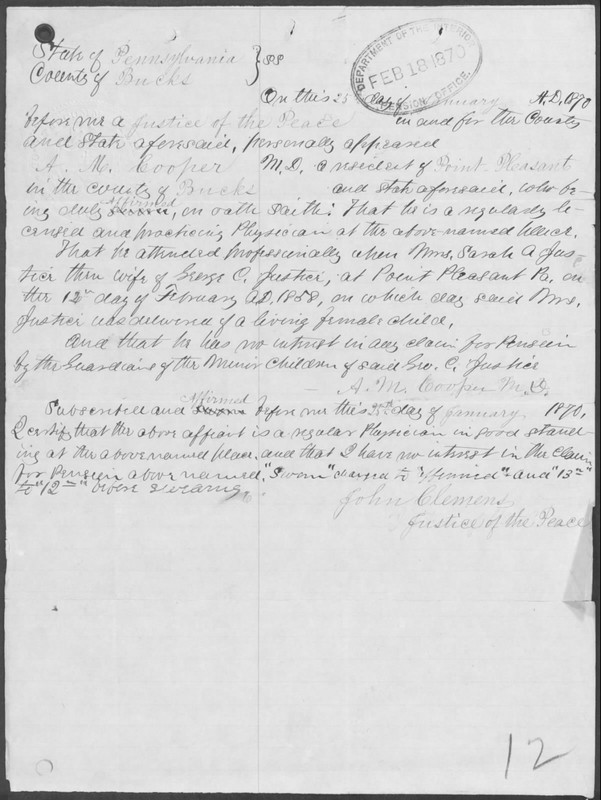 State of Pennsylvania } ss
County of Bucks
DEPARTMENT OF THE INTERIOR
FEB 18 1870
PENSION OFFICE.
On this 25 day of January A.D. 1870
before me a Justice of the Peace in and for the County
and State aforesaid, personally appeared
A. M. Cooper M.D. a resident of Point Pleasant
in the county of Bucks and State aforesaid, who be-
Affirmed
ing duly sworn, on oath saith: That he is a regularly li-
censed and practicing Physician at the above named place.
That he attended professionally when Mrs. Sarah A Jus-
tice then wife of George C. Justice, at Point Pleasant Pa. on
the 12th day of February A.D. 1858, on which day said Mrs.
Justice was delivered of a living female child,
And that he has no interest in any claim for Pension
by the Guardian of the Minor Children of said Geo. C. Justice
A. M. Cooper M.D.
Affirmed
Subscribed and sworn before me this 25th day of January 1870,
I certify that the above affiant is a regular Physician in good stand-
ing at the above named place, and that I have no interest in the claim
for Pension above named, "Sworn" changed to "affirmed" and "13th"
to "12th" before signing.
John Clemens
Justice of the Peace
12